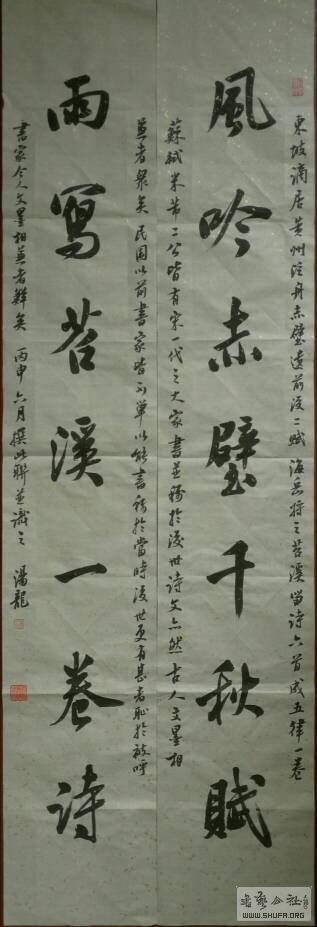 風吟赤壁千秋賦
東坡謫居黄州泛舟赤壁遂前後二賦 海岳將之苕溪留诗六首成五律一卷
蘇軾米芾二公皆有宋一代之大家書並稱於後世诗文亦然古人文墨相
兼者衆矣民國以前書家皆不單以能書稱於當時後世更有甚者恥於被呼
書家今人文墨相兼者鲜矣 丙申六月撰此聯並識之 湯龍
雨寫苕溪一卷詩
WWW.SHUFA.ORG